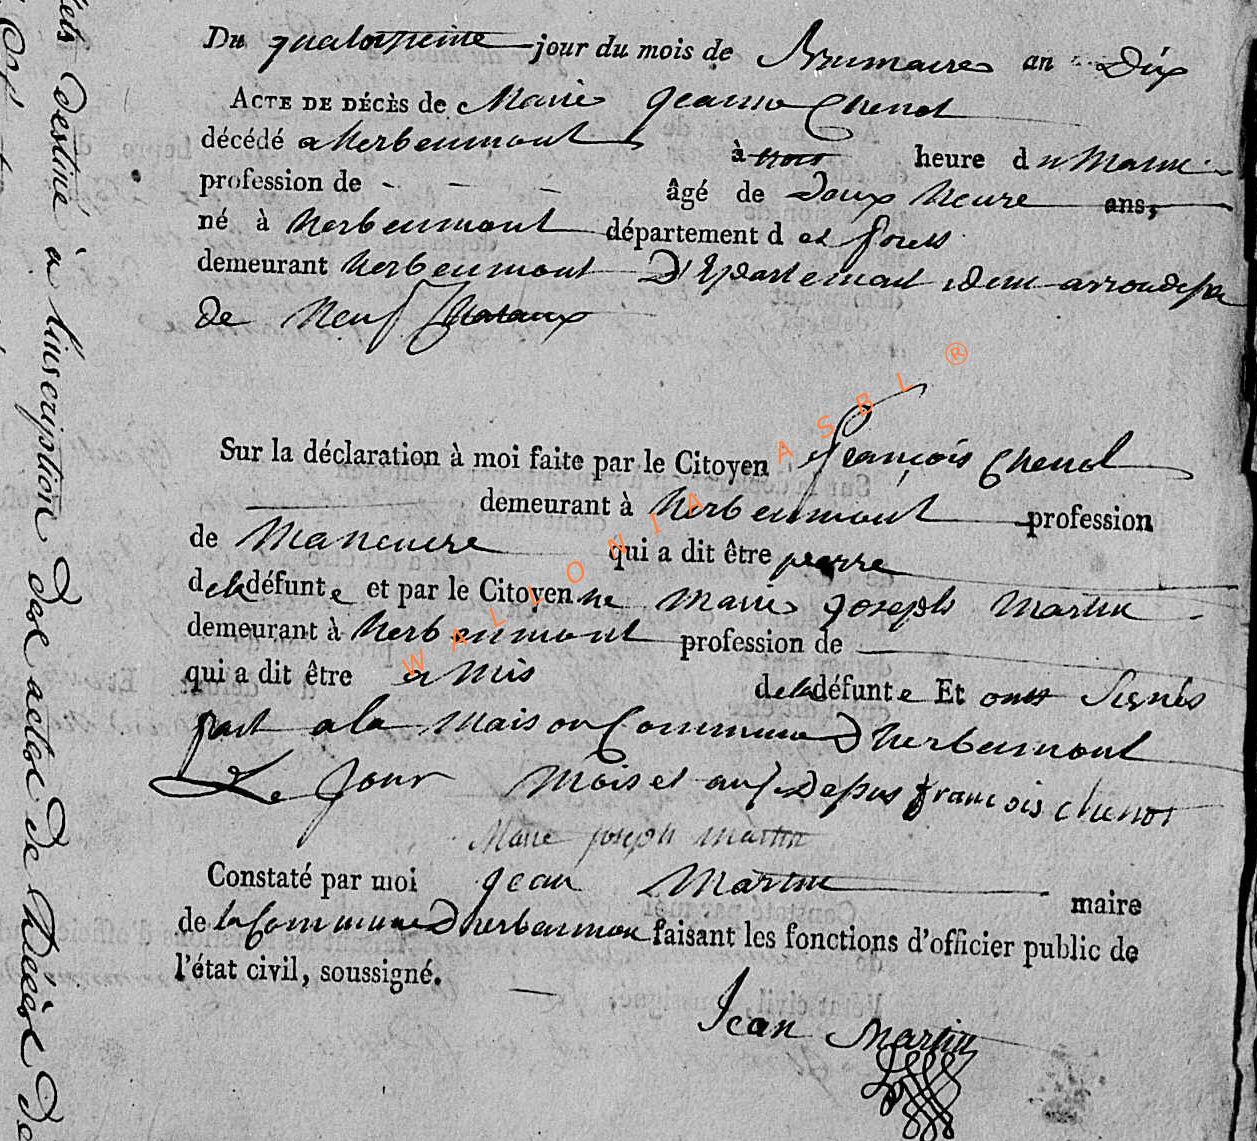 Du quatorzeime jour du mois de Brumaire an Dix
ACTE DE DÉCÈS de Marie Jeanne Chenot
décédé a herbeumont à trois heure d u Matin
profession de - - - âgé de Deux heure ans,
né à herbeumont département d es forets
demeurant herbeumont Departement idem
de Neuf Chataux
Sur la déclaration à moi faite par le Citoyen François Chenot
demeurant à herbeumont profession
de Maneuvre qui a dit être peerre
de la défunte et par le Citoyenne Marie Joseph Martin
demeurant à herbeumont profession de
qui a dit être amis de la défunte Et onts Signés
fait a la Maison Commune D'herbeumont
Le Jour Mois et an françois chenot
Marie joseph martin
Constaté par moi Jean Martin maire
de la Commune D'herbeumon faisant les fonctions d'officier public de
l'état civil, soussigné.
Jean Martin
WALLONIA ASBL ®
destiné à l'inscription des actes de Décès de